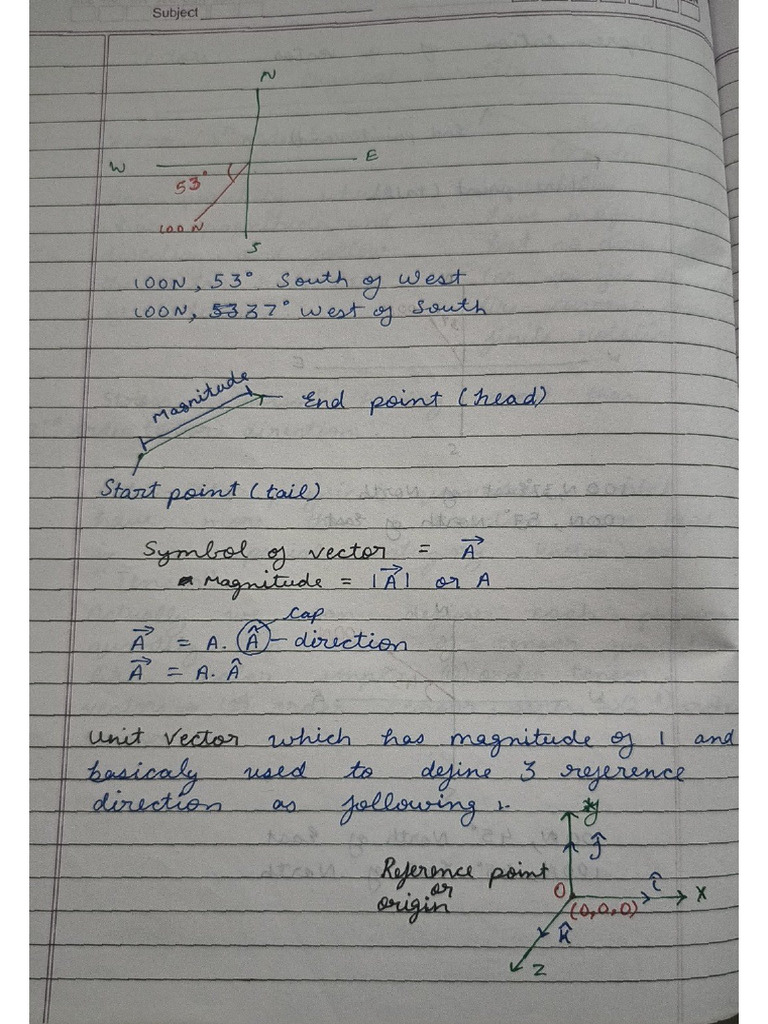 Subject
N
W
E
53°
100N
S
100N, 53° South of West
100N, 5337° West of South
Magnitude
End point (head)
Start point (tail)
Symbol of vector = A⃗
Magnitude = |A⃗| or A
Cap
A⃗ = A. Â – direction
A⃗ = A. Â
Unit Vector which has magnitude of 1 and
basicaly used to define 3 reference
direction as following :-
y
ĵ
Reference point
or
origin
O
(0,0,0)
î
X
k̂
Z